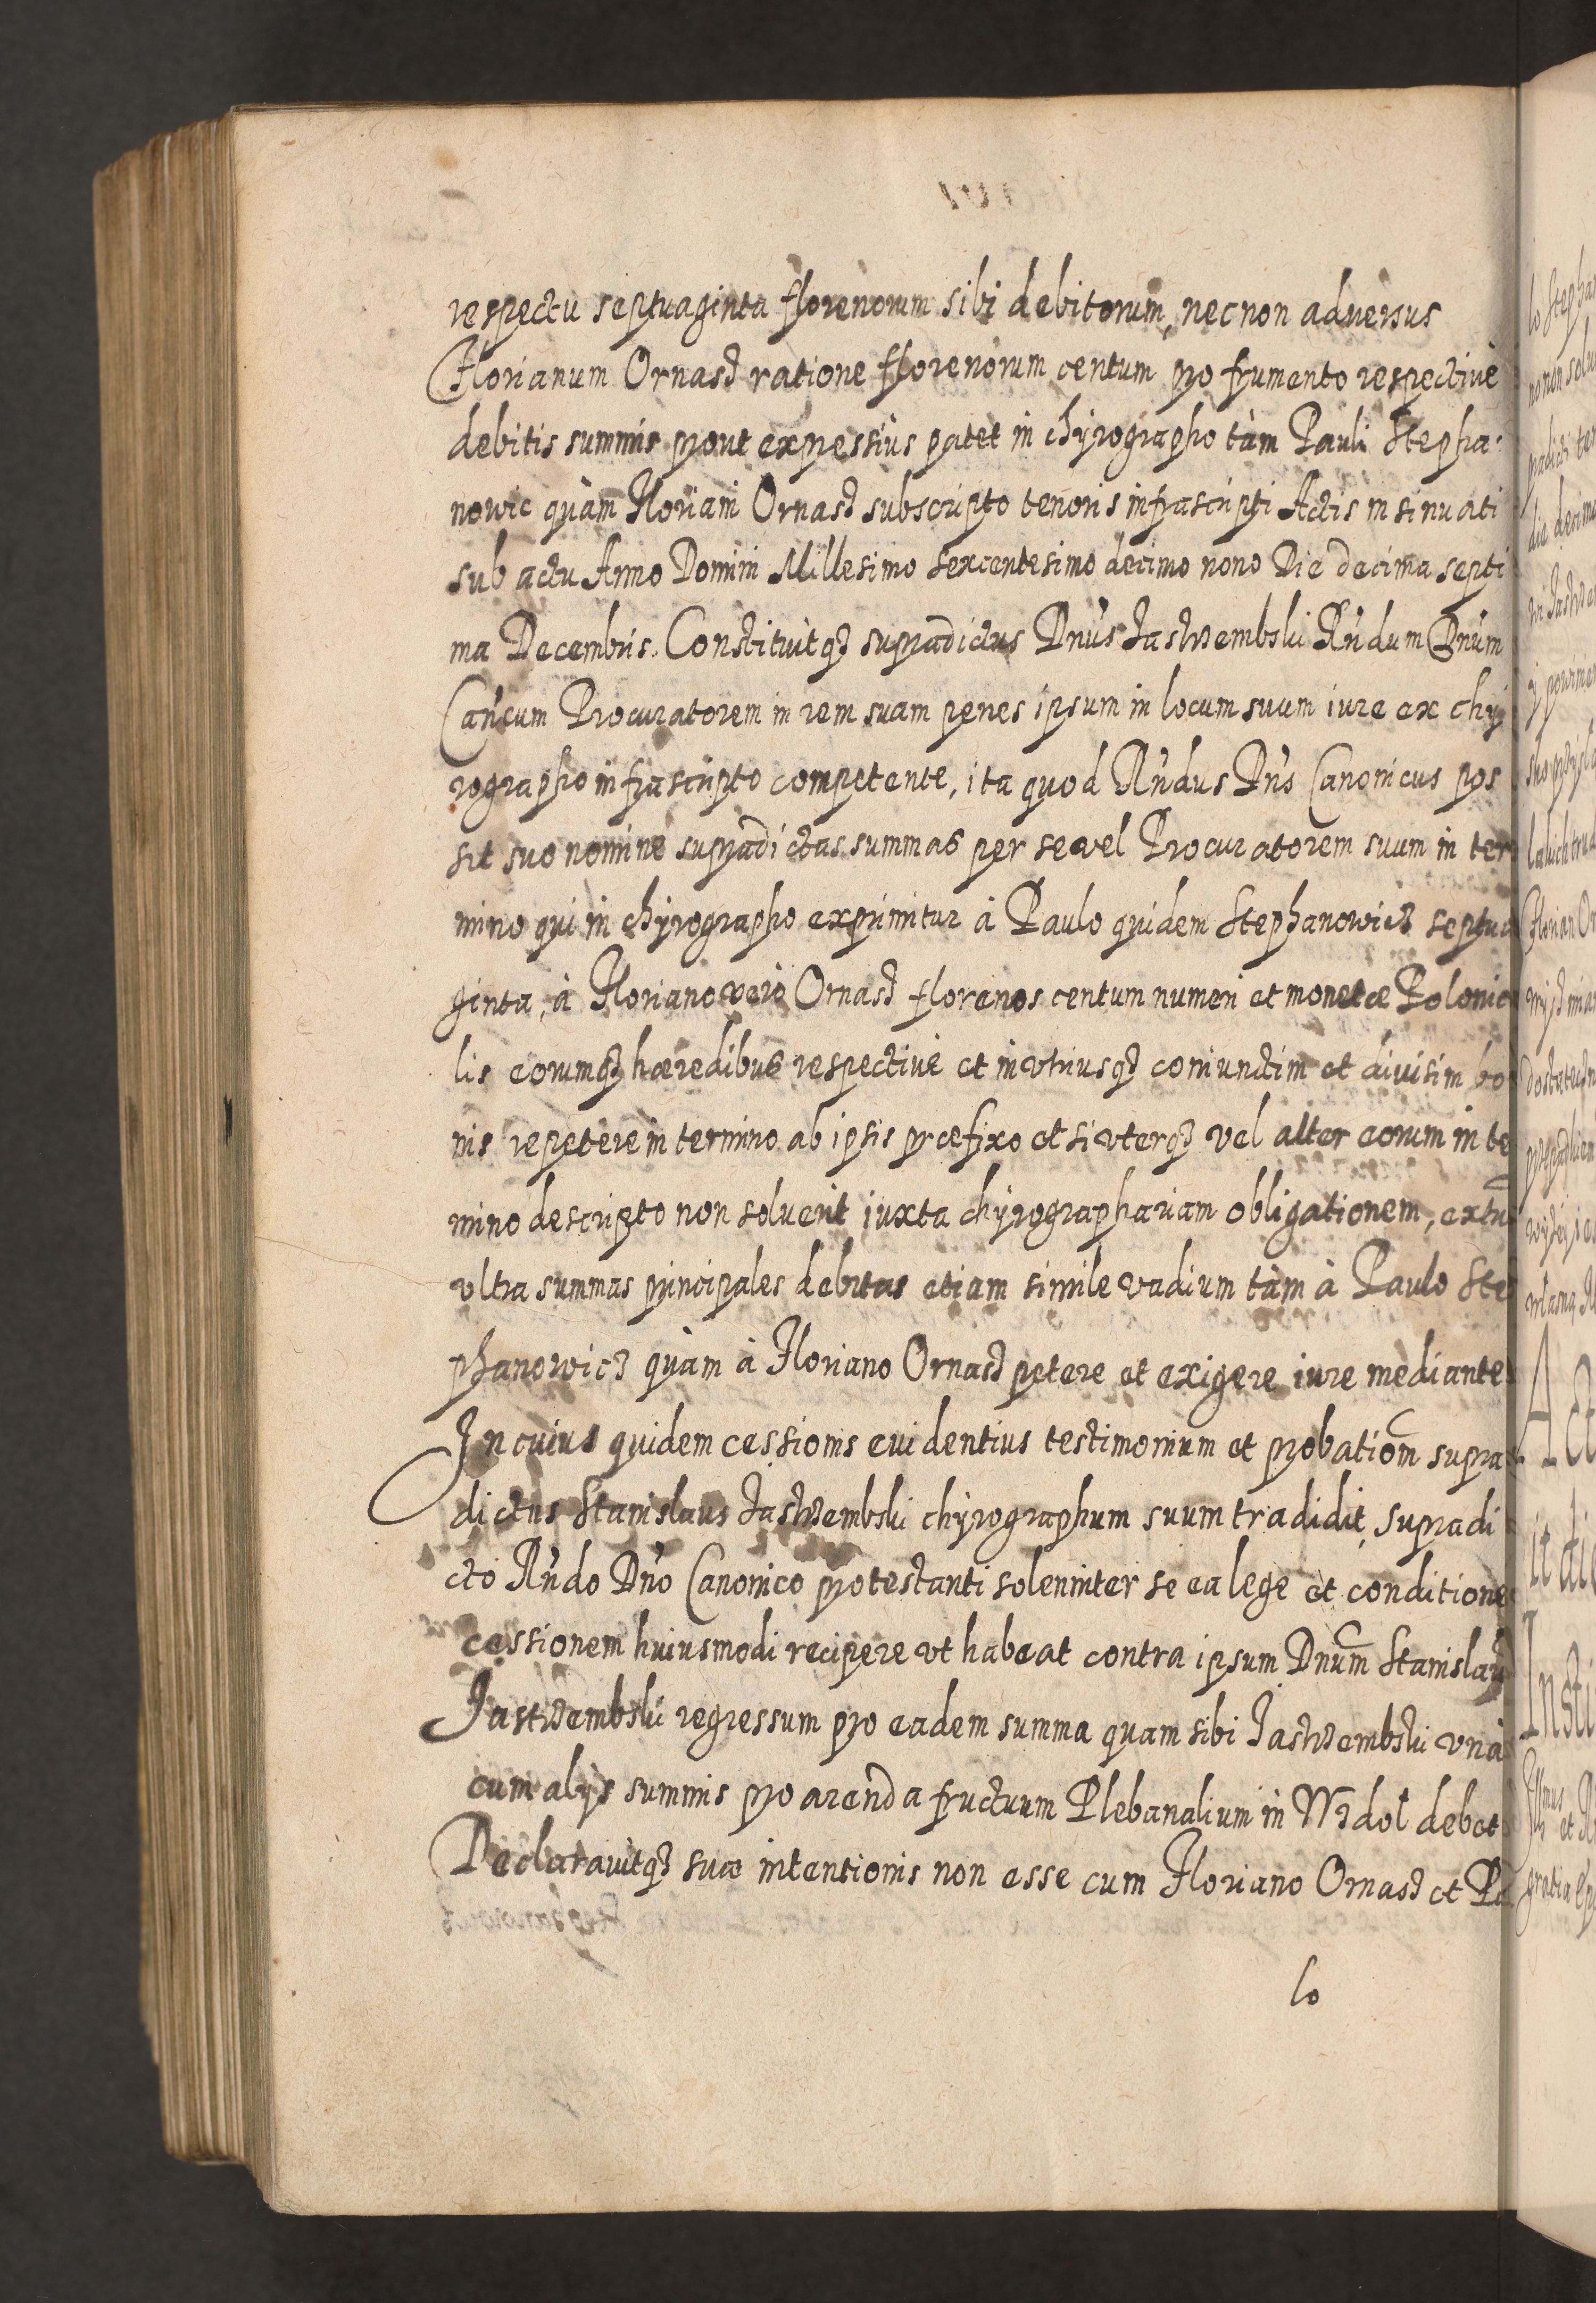 respectu septuaginta florenorum sibi debitorum, necnon aduersus
Florianum Ornasz ratione florenorum centum pro frumento respectiuè
debitis summis prout expressius patet in chyrographo tàm Pauli Stepha:
nowic quàm Floriani Ornasz subscripto tenoris infrascripti Actis insinuati
sub actu Anno Domini Millesimo sexcentesimo decimo nono Die decima septi
ma Decembris. Constituitqз supradictus Dnus Jastrzembski Rndum Dnum
Cancum Procuratorem in rem suam penes ipsum in locum suum iure ex chy
rographo infrascripto competente, ita quod Rndus Dns Canonicus pos
sit suo nomine supradictas summas per se vel Procuratorem suum in ter
mino qui in chyrographo exprimitur à Paulo quidem Stephanowicz septua
ginta, à Floriano verò Ornasz florenos centum numeri et monetæ Polonic
lis eorumqз hæredibus respectiuè et in vtriusqз coniunctim et diuisim bo
nis repetere in termino ab ipsis præfixo et si vterqз vel alter eorum in te
mino descripto non soluerit iuxta chyrographariam obligationem, extu
vltra summas principales debitas etiam simile vadium tàm à Paulo Ste
phanowicz quàm à Floriano Ornasz petere et exigere iure mediante
In cuius quidem cessionis euidentius testimonium et probatiom supra
dictus Stanislaus Jastrzembski chyrographum suum tradidit, supradi
cto Rndo Dno Canonico protestanti solenniter se ea lege et conditione
cessionem huiusmodi recipere vt habeat contra ipsum Dnum Stanislau
Jastrzembski regressum pro eadem summa quam sibi Jastrzembski vnà
cum alijs summis pro arenda fructuum Plebanalium in Wzdoł debet
Declarauitqз suæ intentionis non esse cum Floriano Ornasz et Pa
lo